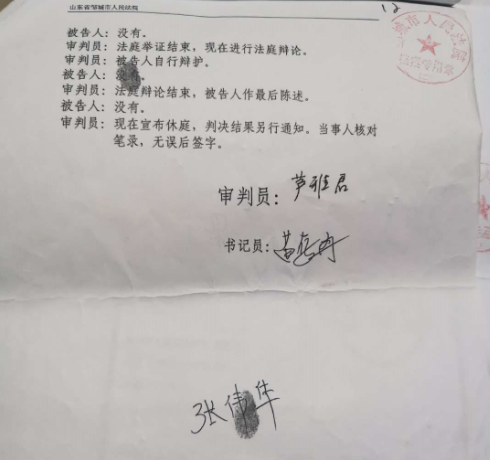 山东省邹城市人民法院
12
被告人：没有。
审判员：法庭举证结束，现在进行法庭辩论。
审判员：被告人自行辩护。
被告人：没有。
审判员：法庭辩论结束，被告人作最后陈述。
被告人：没有。
审判员：现在宣布休庭，判决结果另行通知。当事人核对
笔录，无误后签字。
审判员：
书记员：
张伟华